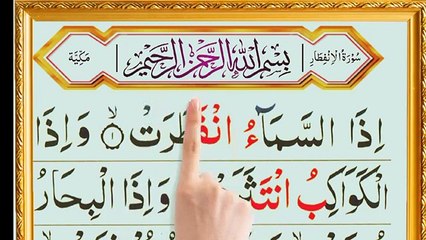 سُورَةُ الْاِنْفِطَار بِسْمِ اللّٰهِ الرَّحْمٰنِ الرَّحِيْمِ مَكِّيَّة
اِذَا السَّمَآءُ انْفَطَرَتْ ۙ‏ ١ وَاِذَا
الْكَوَاكِبُ انْتَثَ وَاِذَا الْبِحَارُ